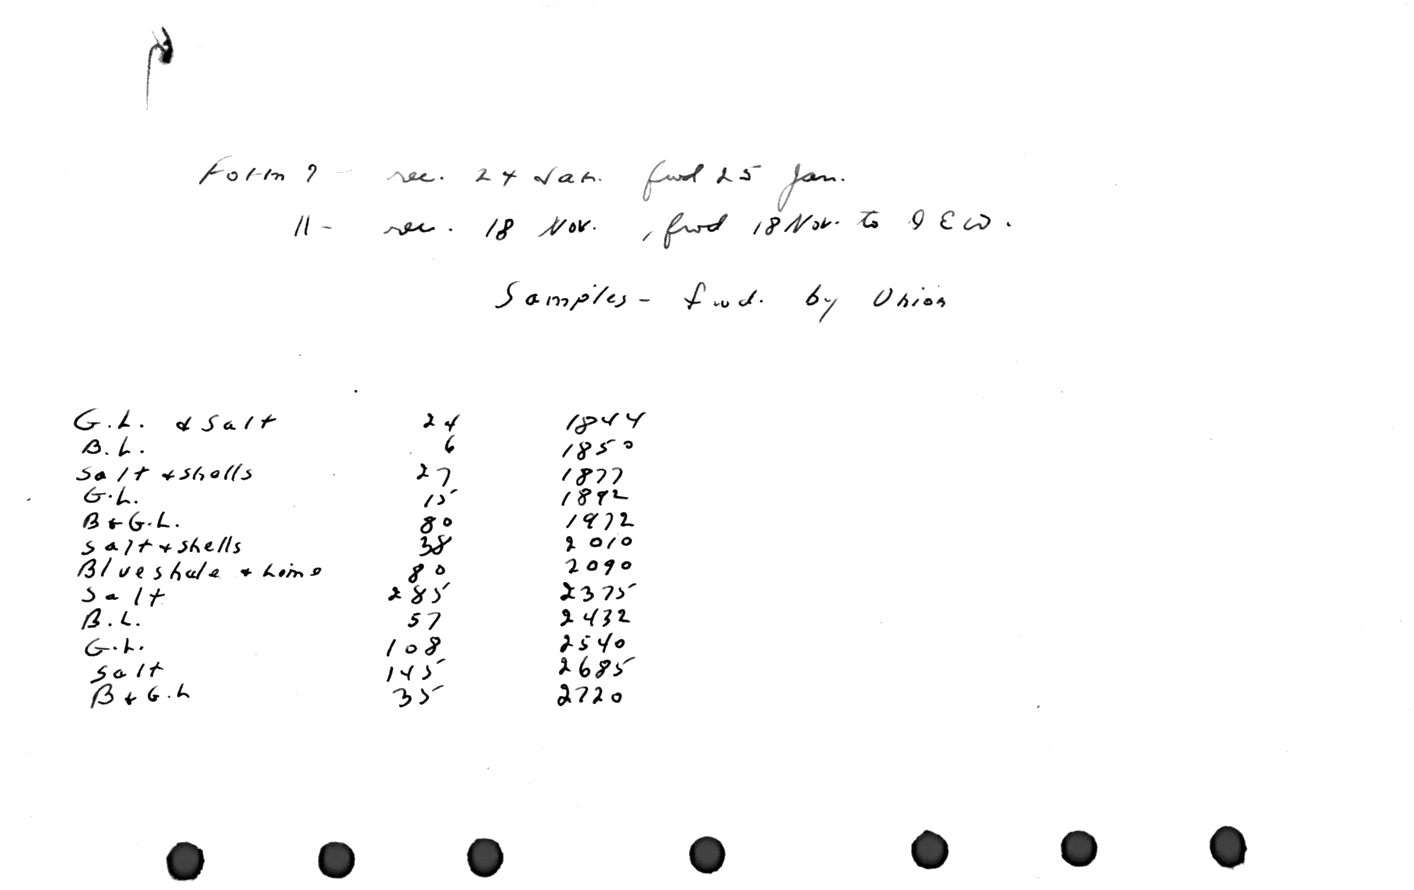 Form 9 - rec. 24 Jan. fwd 25 Jan.
11 - rec. 18 Nov. , fwd 18 Nov. to
Samples - fwd. by Union
G.L. & Salt 24 1844
B.L. 6 1850
Salt & shells 27 1877
G.L. 15 1892
B & G.L. 80 1972
Salt & shells 38 2010
Blue shale & Lime 80 2090
Salt 285 2375
B.L. 57 2432
G.L. 108 2540
Salt 145 2685
B & G.L 35 2720